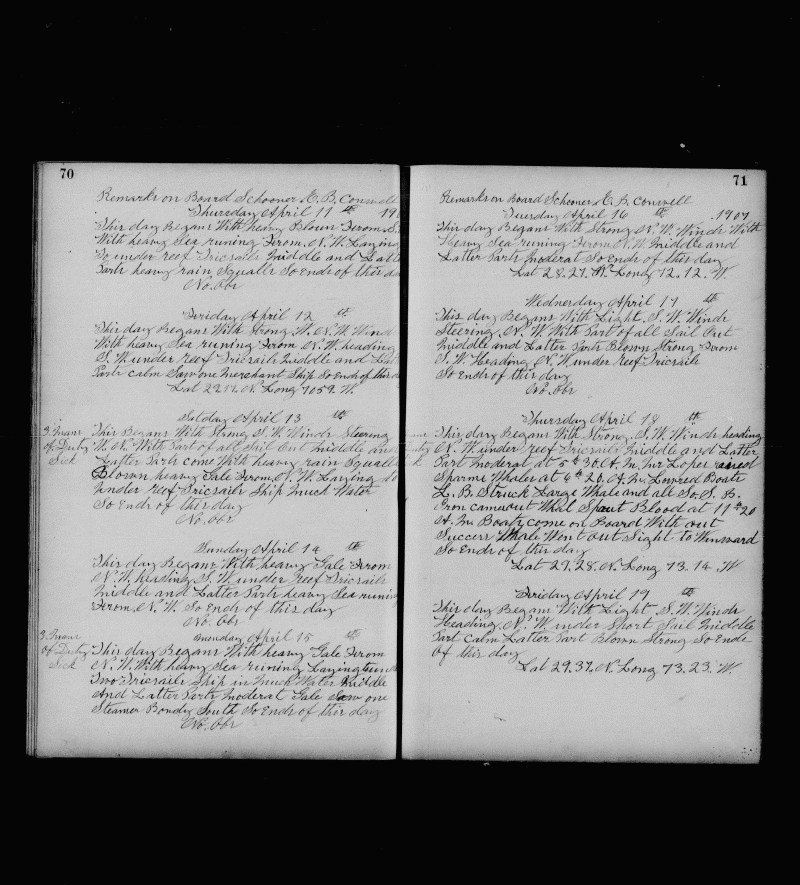 70
Remarks on Board Schooner E. B. Conwell
Thursday April 11th 190
This day Begans With heavy Blown From S.
With heavy Sea runing From N. W. Laying
To under reef Tricsails Middle and Latt
Parts heavy rain Squalls So Ends of this da
No. Obs
Friday April 12th
This day Begans With Strong W. N. W. Wind
With heavy Sea runing From N. W. heading
S. W. under reef Tricsails Middle and Latt
Parts calm Saw one Merchant Ship So Ends of this d
Lat 29.17. N. Long 70 59. W.
Satday April 13th
3. Mans
of Duty
Sick
This Begans With Strong S. W. Winds Steering
W. N. With Part of all Sail Out Middle and
Latter Parts come With heavy rain Squalls
Blown heavy Gale From N. W. Laying to
Under reef Tricsails Ship Muck Water
So Ends of this day
No. Obs
Sunday April 14th
This day Begans With heavy Gale From
N. W. heading S. W. under reef Tricsails
Middle and Latter Parts heavy Sea runing
From N. W. So Ends of this day
No. Obs
Munday April 15th
3. Mans
of Duty
Sick
This day Begans With heavy Gale From
N. W. With heavy Sea runing Laying tu
Two Tricsails Ship in Muck Water Middle
And Latter Parts Moderat Gale Saw one
Steamer Bondy South So Ends of this day
No. Obs
71
Remarks on Board Schooner E. B. Conwell
Tuesday April 16th 1907
This day Begans With Strong N. W. Winds With
Heavy Sea runing From N. W. Middle and
Latter Parts Moderat So Ends of this day
Lat 28.27. N. Long 72.12. W.
Wednesday April 17th
This day Begans With Light S. W. Winds
Steering N. W. With Part of all Sail Out
Middle and Latter Parts Blown Strong From
S. W. Heading N. W. under reef Tricsails
So Ends of this day
No. Obs
Thursday April 18th
This day Begans With Strong S. W. Winds heading
N. W. under reef Tricsails Middle and Latter
Part Moderat at 5th 30. A. M. Mr Loper raised
Sparme Whales at 6th 20. A. M. Lowred Boats
L. B. Struck Large Whale and all So. S. B.
Iron came out Whal Spout Blood at 11th 20
A. M. Boats come on Board With out
Success Whale Went out Sight to Winward
So Ends of this day
Lat 29.28. N. Long 73.14. W
Friday April 19th
This day Begans With Light S. W. Winds
Heading N. W. under Short Sail Middle
Part calm Latter Part Blown Strong So Ends
of this day
Lat 29.37. N. Long 73.23. W.